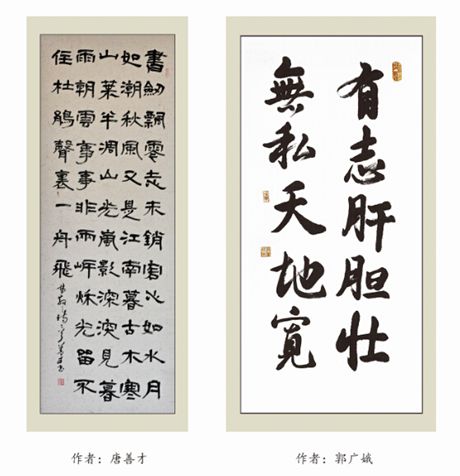 書劒飄零志未銷客心如水月
如潮秋風又是江南暮古木寒
山葉半凋山光嵐影深深見暮
雨朝雲事事非兩岸秌光留不
住杜鵑聲裏一舟飛
有志肝胆壮
無私天地寬
作者：唐善才
作者：郭广娥